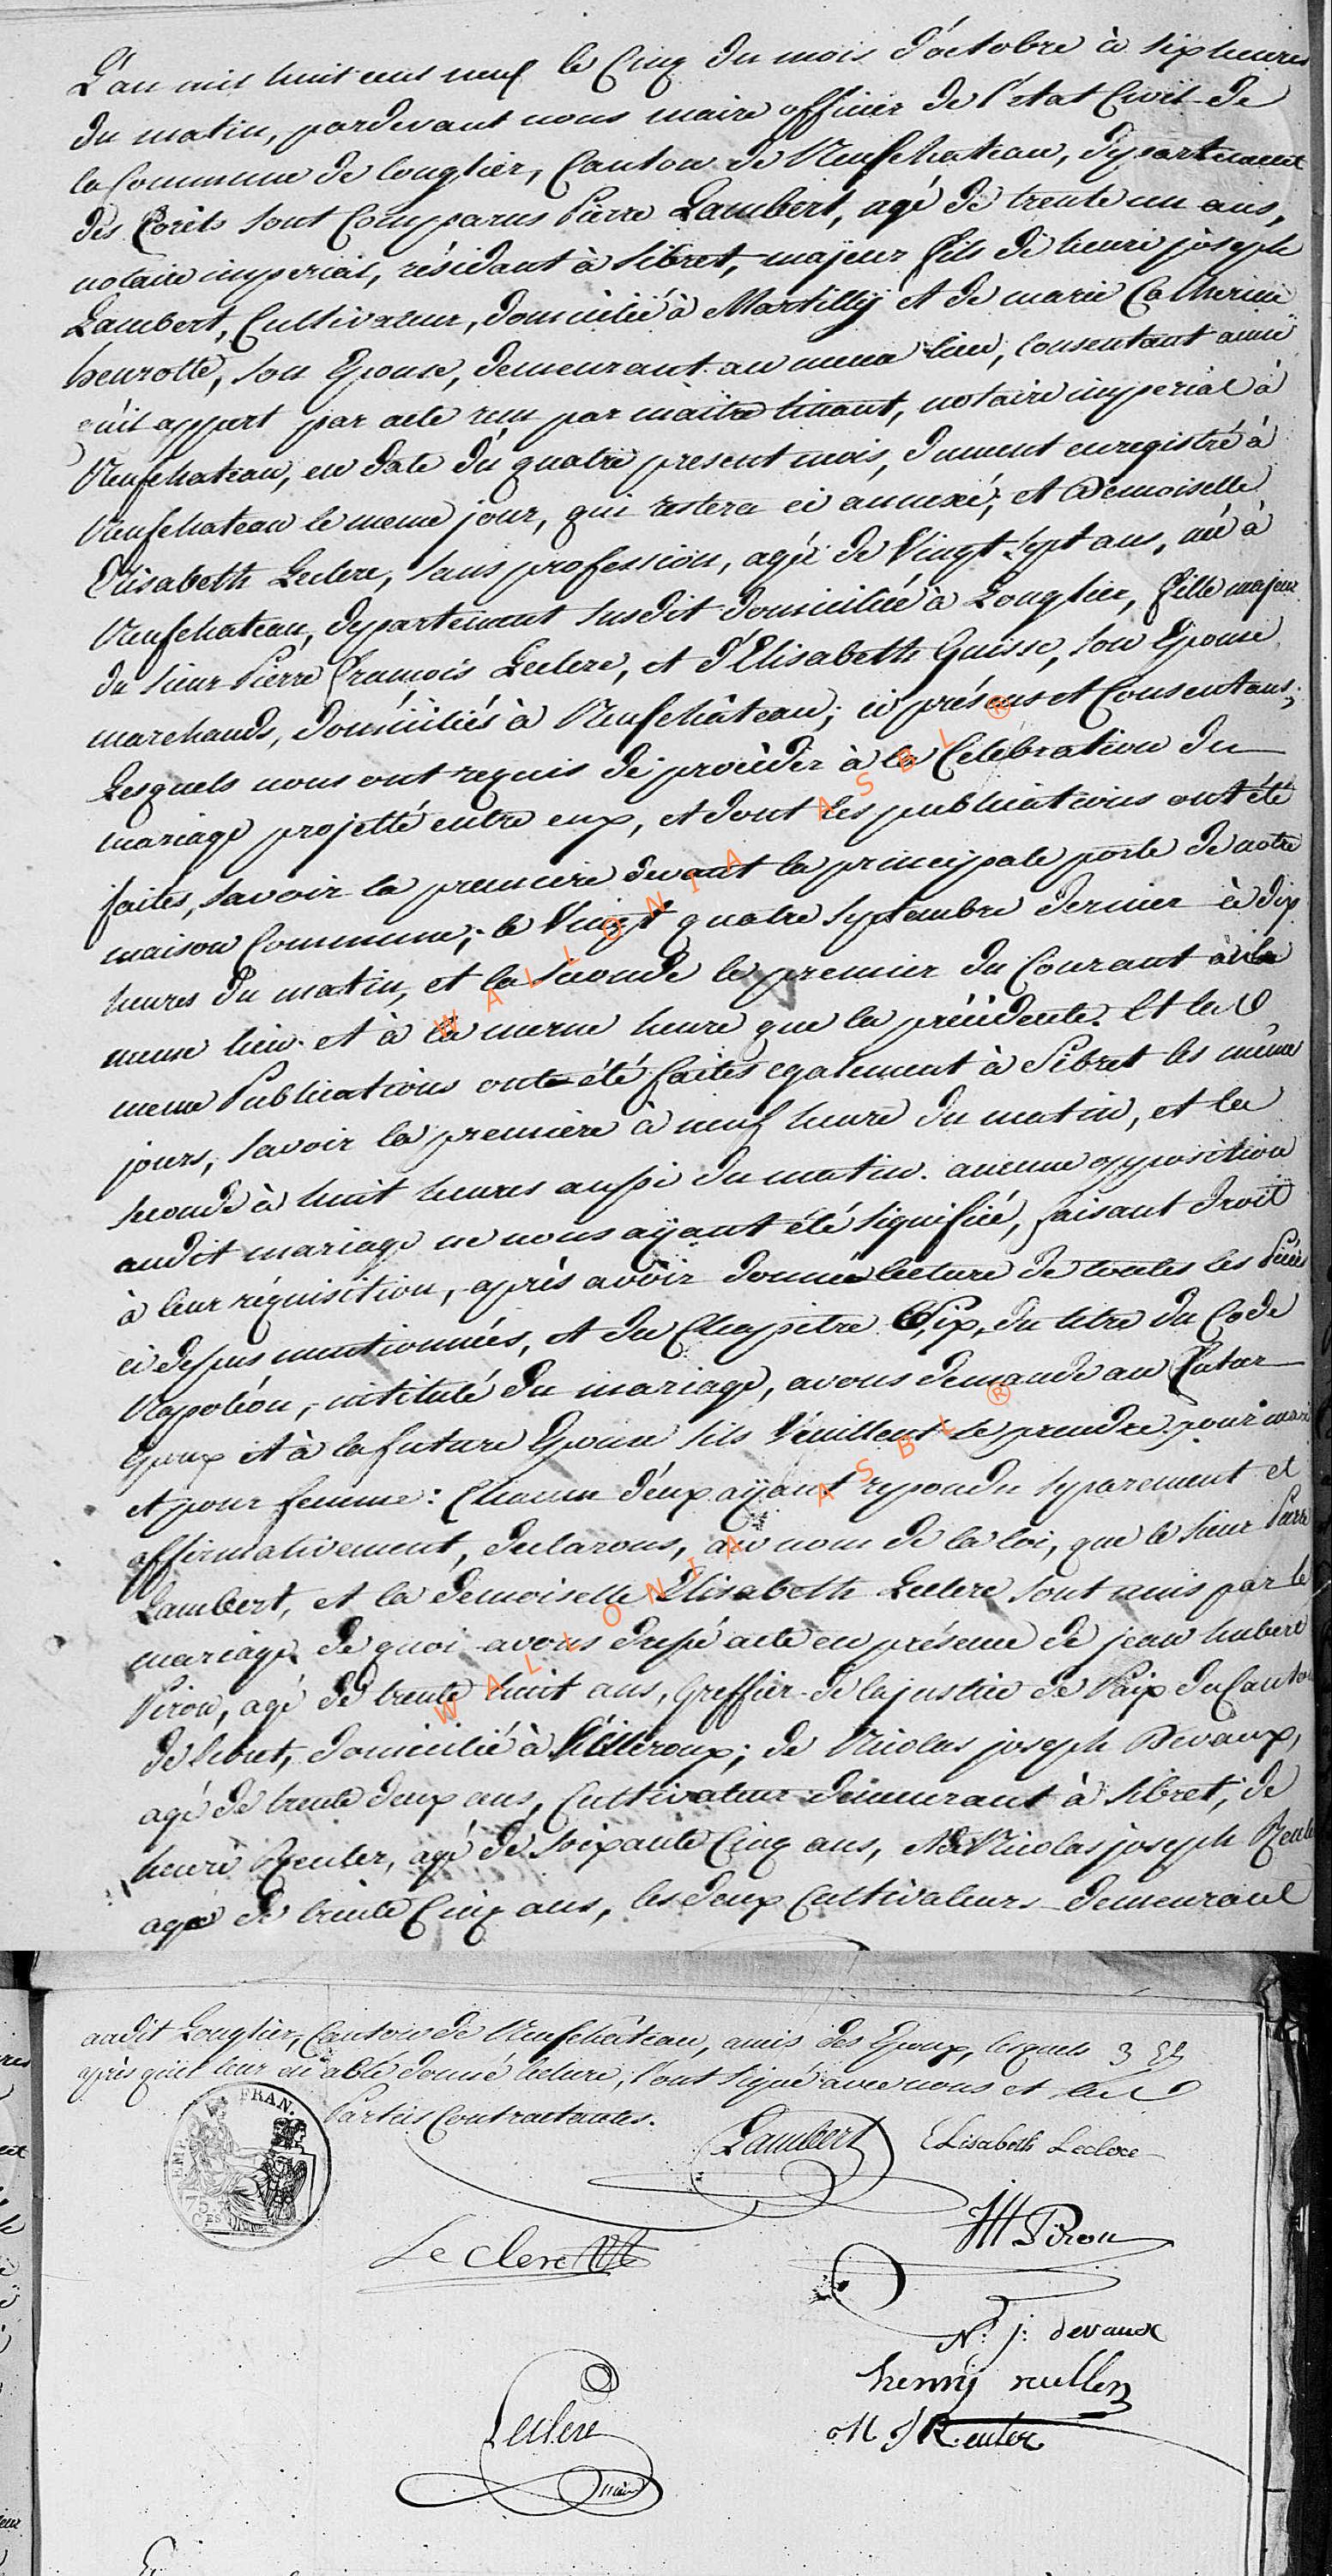 L'an mil huit cent neuf le Cinq du mois d'octobre à six heures
du matin, pardevant nous maire officier de l'état Civil de
la Commune de longlier, Canton de Neufchateau, département
des forêts sont Comparus Pierre Lambert, agé de trente un ans,
notaire imperial, résidant à Sibret, majeur fils de henri joseph
Lambert, Cultivateur, domicilié à Martilly et de marie Catherine
henrotte, son Epouse, demeurant au meme lieu, consentant ainsi
qu'il appert par acte reçu par maître tinant, notaire imperial à
Neufchateau, en date du quatre present mois, dument enregistré à
Neufchateau le meme jour, qui restera ci annexé; et Demoiselle
Elisabeth Leclere, sans profession, agée de Vingt sept ans, née à
Neufchateau, département susdit domiciliée à Longlier, fille majeur
du sieur Pierre François Leclere, et d'Elisabeth Guisse, son Epouse
marchands, domiciliés à Neufchâteau; ci présens et Consentans;
Lesquels nous ont requis de procéder à la Célébration du
mariage projetté entre eux, et dont les publications ont été
faites, savoir la premiere devant la principale porte de notre
maison Commune, le Vingt quatre septembre dernier à dix
heures du matin, et la seconde le premier du Courant
meme lieu et à la meme heure que la précédente. Et les
meme Publications ont été faites egalement à Sibret les même
jours, savoir la première à neuf heure du matin, et la
seconde à huit heures aussi du matin. aucune opposition
audit mariage ne nous ayant été signifiée, faisant droit
à leur réquisition, après avoir donné lecture de toutes les Pièces
ci dessus mentionnées, et du Chapitre Six, du titre du Code
Napoléon, intitulé du mariage, avons demandé au futur
Epoux et à la future Epouse s'ils Veuillent se prendre pour mari
et pour femme: Chacun d'eux ayant repondu séparement et
affirmativement, declarons, au nom de la loi, que le sieur Pierre
Lambert, et la demoiselle Elisabeth Leclere sont unis par le
mariage. de quoi avons dressé acte en présence de jean hubert
Piron, agé de trente huit ans, Greffier de la justice de Paix du Canton
de Sibret, domicilié à ; de Nicolas joseph Devaux,
agé de trente deux ans, Cultivateur demeurant à Sibret, de
henri Reuler, agé de soixante Cinq ans, et de Nicolas joseph Reuler
agé de trente Cinq ans, les deux Cultivateurs demeurant
audit Longlier, Canton de Neufchâteau, amis des Epoux, lesquels
après qu'il leur en a été donné lecture, l'ont signé avec nous et les
Parties Contractantes.
EMP. FRAN.
75
Lambert Elisabeth Leclere
JH Piron
Leclere
N: j: devaux
henrij
Leclere
maire
N J Reuler
WALLONIA ASBL ®
WALLONIA ASBL ®